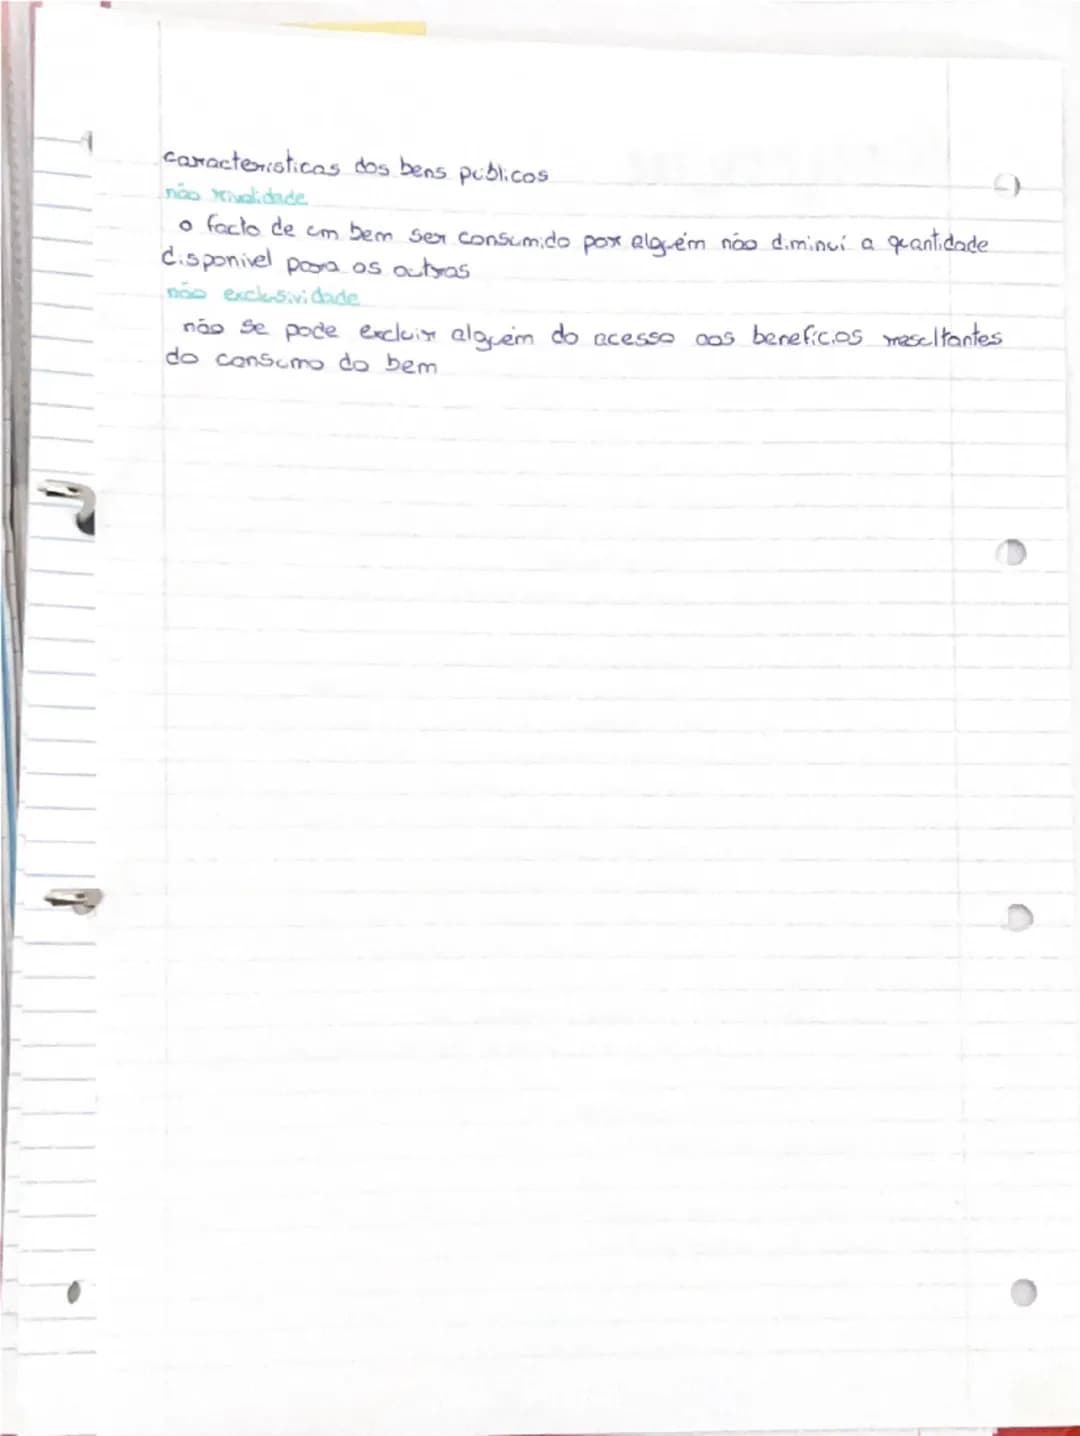 caracteristicas dos bens públicos
não rivalidade
o facto de um bem ser consumido por alguém não diminui a quantidade
disponivel para os outros
não exclusividade
não se pode excluir alguém do acesso aos beneficios resultantes
do consumo do bem